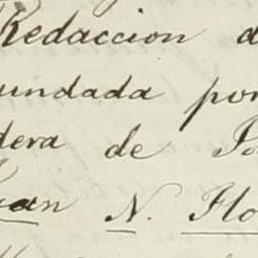 Redaccion d
undada por
dera de
an N. Flo